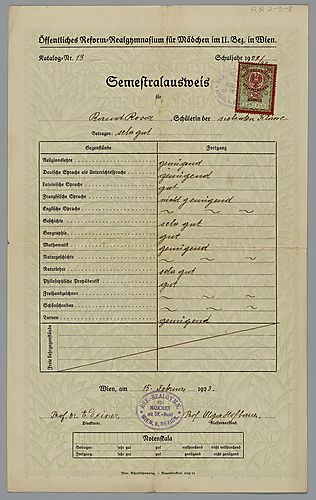 RR 2-3-8
Öffentliches Reform-Realgymnasium für Mädchen im II. Bez. in Wien.
Katalog-Nr. 13 Schuljahr 1922/
Semestralausweis
für
Rosner, Schülerin der siebenten Klasse
Betragen: sehr gut
Gegenstände Fortgang
Religionslehre genügend
Deutsche Sprache als Unterrichtssprache genügend
Lateinische Sprache gut
Französische Sprache nicht genügend
Englische Sprache ~ ~ ~
Geschichte sehr gut
Geographie gut
Mathematik genügend
Naturgeschichte ~ ~ ~
Naturlehre sehr gut
Philosophische Propädeutik gut
Freihandzeichnen ~ ~ ~
Schönschreiben ~ ~ ~
Turnen genügend
Freie Lehrgegenstände
Wien, am 15. Februar 1923.
Prof. Dr. E. Prof. Olga
Direktorin. Klassenvorstand.
REALGYMN.
FÜR
MÄDCHEN
WIEN, 2. BEZIRK
Notenskala
Betragen: sehr gut gut entsprechend nicht entsprechend
Fortgang: sehr gut gut genügend nicht genügend